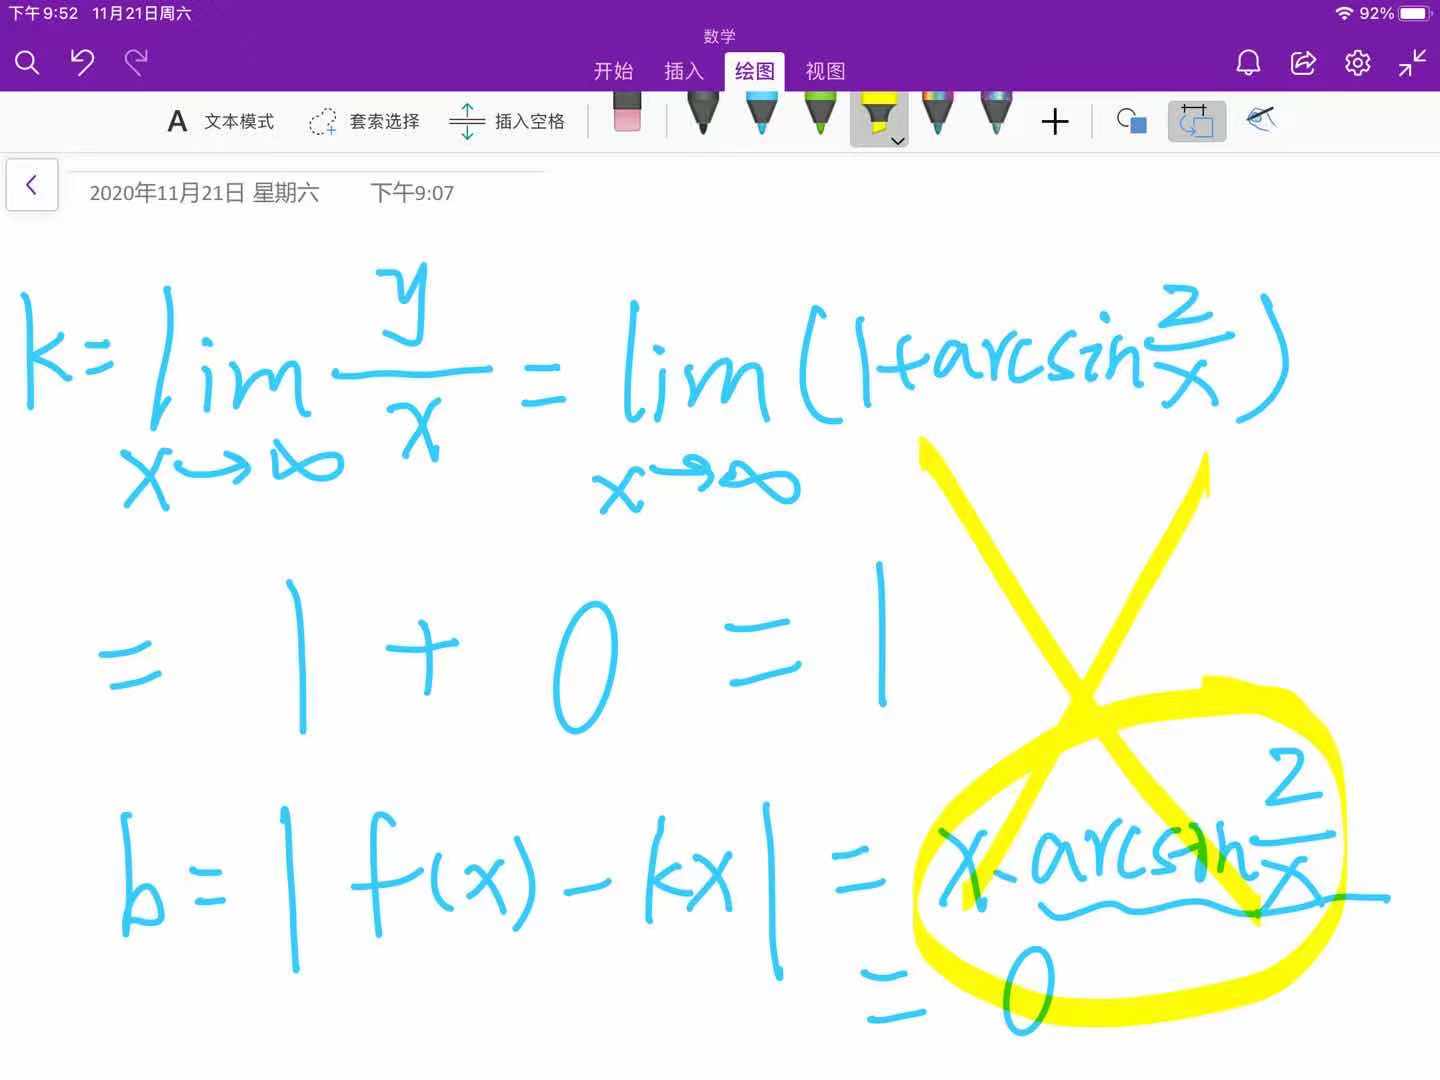 下午9:52 11月21日周六 92%
数学
开始 插入 绘图 视图
A 文本模式 套索选择 插入空格
2020年11月21日 星期六 下午9:07
k = lim y/x = lim (1+arcsin 2/x)
x→∞ x→∞
= 1 + 0 = 1
b = | f(x) - kx | = x·arcsin 2/x
= 0